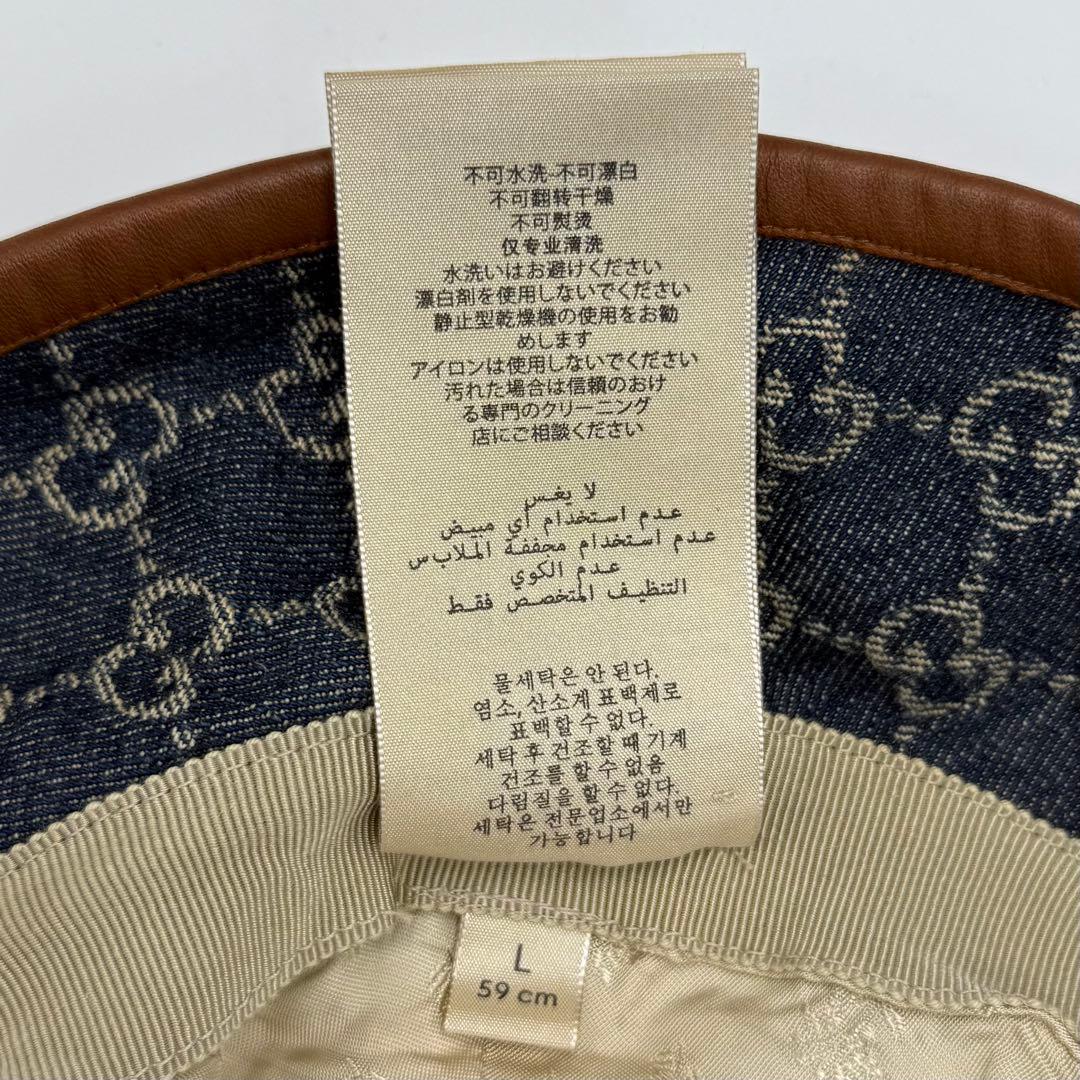 不可水洗-不可漂白
不可翻转干燥
不可熨烫
仅专业清洗
水洗いはお避けください
漂白剤を使用しないでください
静止型乾燥機の使用をお勧
めします
アイロンは使用しないでください
汚れた場合は信頼のおけ
る専門のクリーニング
店にご相談ください
لا يغسل
عدم استخدام أي مبيض
عدم استخدام مجففة الملابس
عدم الكوي
التنظيف المتخصص فقط
물세탁은 안 된다.
염소, 산소계 표백제로
표백할 수 없다.
세탁 후 건조할 때 기계
건조를 할 수 없음
다림질을 할 수 없다.
세탁은 전문업소에서만
가능합니다
L
59 cm